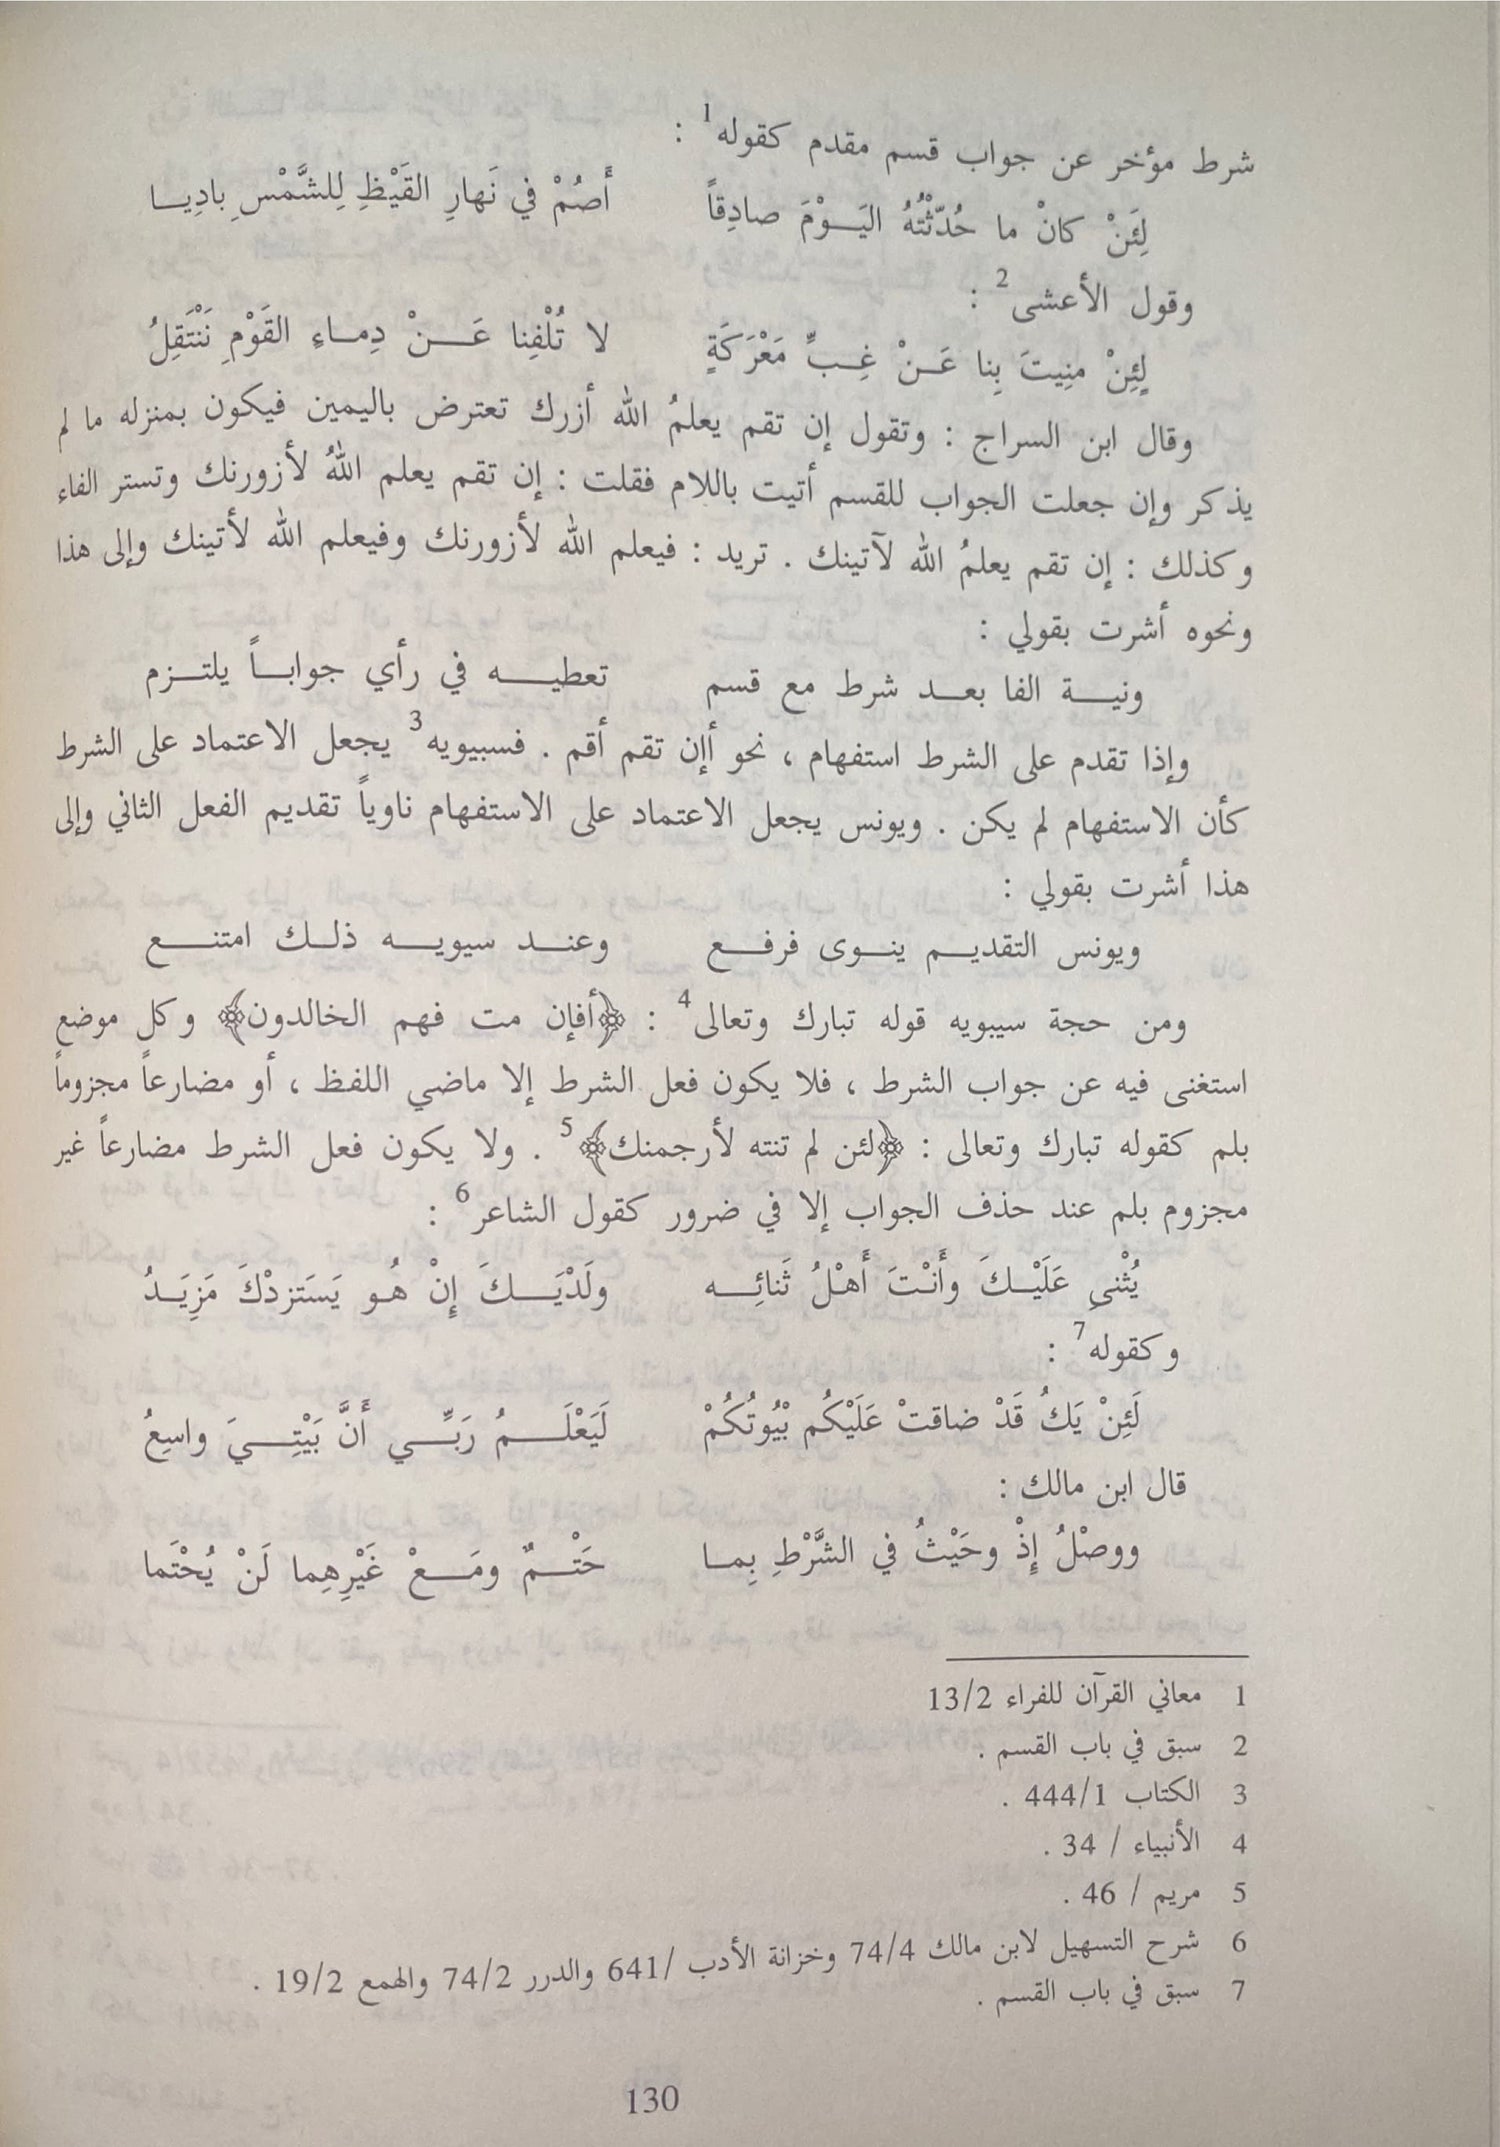 شرط مؤخر عن جواب قسم مقدم كقوله1 :
لِئَنْ كانْ ما حُدّثْتُهُ اليَوْمَ صادِقاً أَصُمْ في نَهارِ القَيْظِ لِلشَّمْسِ بادِيا
وقول الأعشى2 :
لِئِنْ منِيتَ بِنا عَنْ غِبِّ مَعْرَكَةٍ لا تُلْفِنا عَنْ دِماءِ القَوْمِ نَنْتَقِلُ
وقال ابن السراج : وتقول إن تقم يعلمُ الله أزرك تعترض باليمين فيكون بمنزله ما لم
يذكر وإن جعلت الجواب للقسم أتيت باللام فقلت : إن تقم يعلم اللهُ لأزورنك وتستر الفاء
وكذلك : إن تقم يعلمُ الله لآتينك . تريد : فيعلم الله لأزورنك وفيعلم الله لأتينك وإلى هذا
ونحوه أشرت بقولي :
ونية الفا بعد شرط مع قسم تعطيه في رأي جواباً يلتزم
وإذا تقدم على الشرط استفهام ، نحو أإن تقم أقم . فسيبويه3 يجعل الاعتماد على الشرط
كأن الاستفهام لم يكن . ويونس يجعل الاعتماد على الاستفهام ناوياً تقديم الفعل الثاني وإلى
هذا أشرت بقولي :
ويونس التقديم ينوى فرفع وعند سيويه ذلك امتنع
ومن حجة سيبويه قوله تبارك وتعالى4 : ﴿أفإن مت فهم الخالدون﴾ وكل موضع
استغنى فيه عن جواب الشرط ، فلا يكون فعل الشرط إلا ماضي اللفظ ، أو مضارعاً مجزوماً
بلم كقوله تبارك وتعالى : ﴿لئن لم تنته لأرجمنك﴾5 . ولا يكون فعل الشرط مضارعاً غير
مجزوم بلم عند حذف الجواب إلا في ضرور كقول الشاعر6 :
يُثْني عَلَيْكَ وأَنْتَ أَهْلُ ثَنائِه ولَدْيَكَ إِنْ هُو يَسَتزدْكَ مَزِيَدُ
وكقوله7 :
لَئِنْ يَكُ قَدْ ضاقتْ عَلَيْكُم بْيُوتُكُمْ لَيَعْلَمُ رَبِّي أَنَّ بَيْتِيَ واسِعُ
قال ابن مالك :
ووصْلُ إِذْ وحَيْثُ في الشَّرْطِ بِما حَتْمٌ ومَعْ غَيْرِهِما لَنْ يُحْتَما
1 معاني القرآن للفراء 13/2
2 سبق في باب القسم .
3 الكتاب 444/1 .
4 الأنبياء / 34 .
5 مريم / 46 .
6 شرح التسهيل لابن مالك 74/4 وخزانة الأدب /641 والدرر 74/2 والهمع 19/2 .
7 سبق في باب القسم .
130